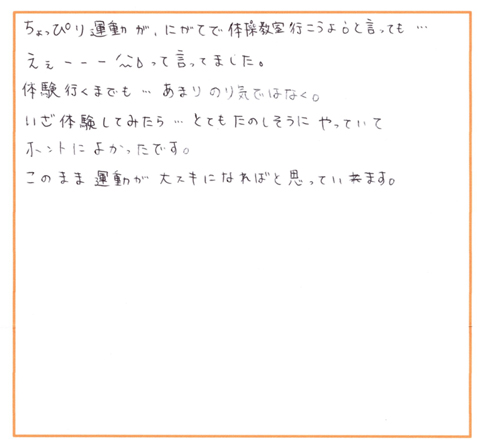 ちょっぴり運動が、にがてで体操教室行こうよ!と言っても…
えぇーーーって言ってました。
体験行くまでも…あまりのり気ではなく。
いざ体験してみたら…とてもたのしそうにやっていて
ホントによかったです。
このまま運動が大スキになればと思っています。